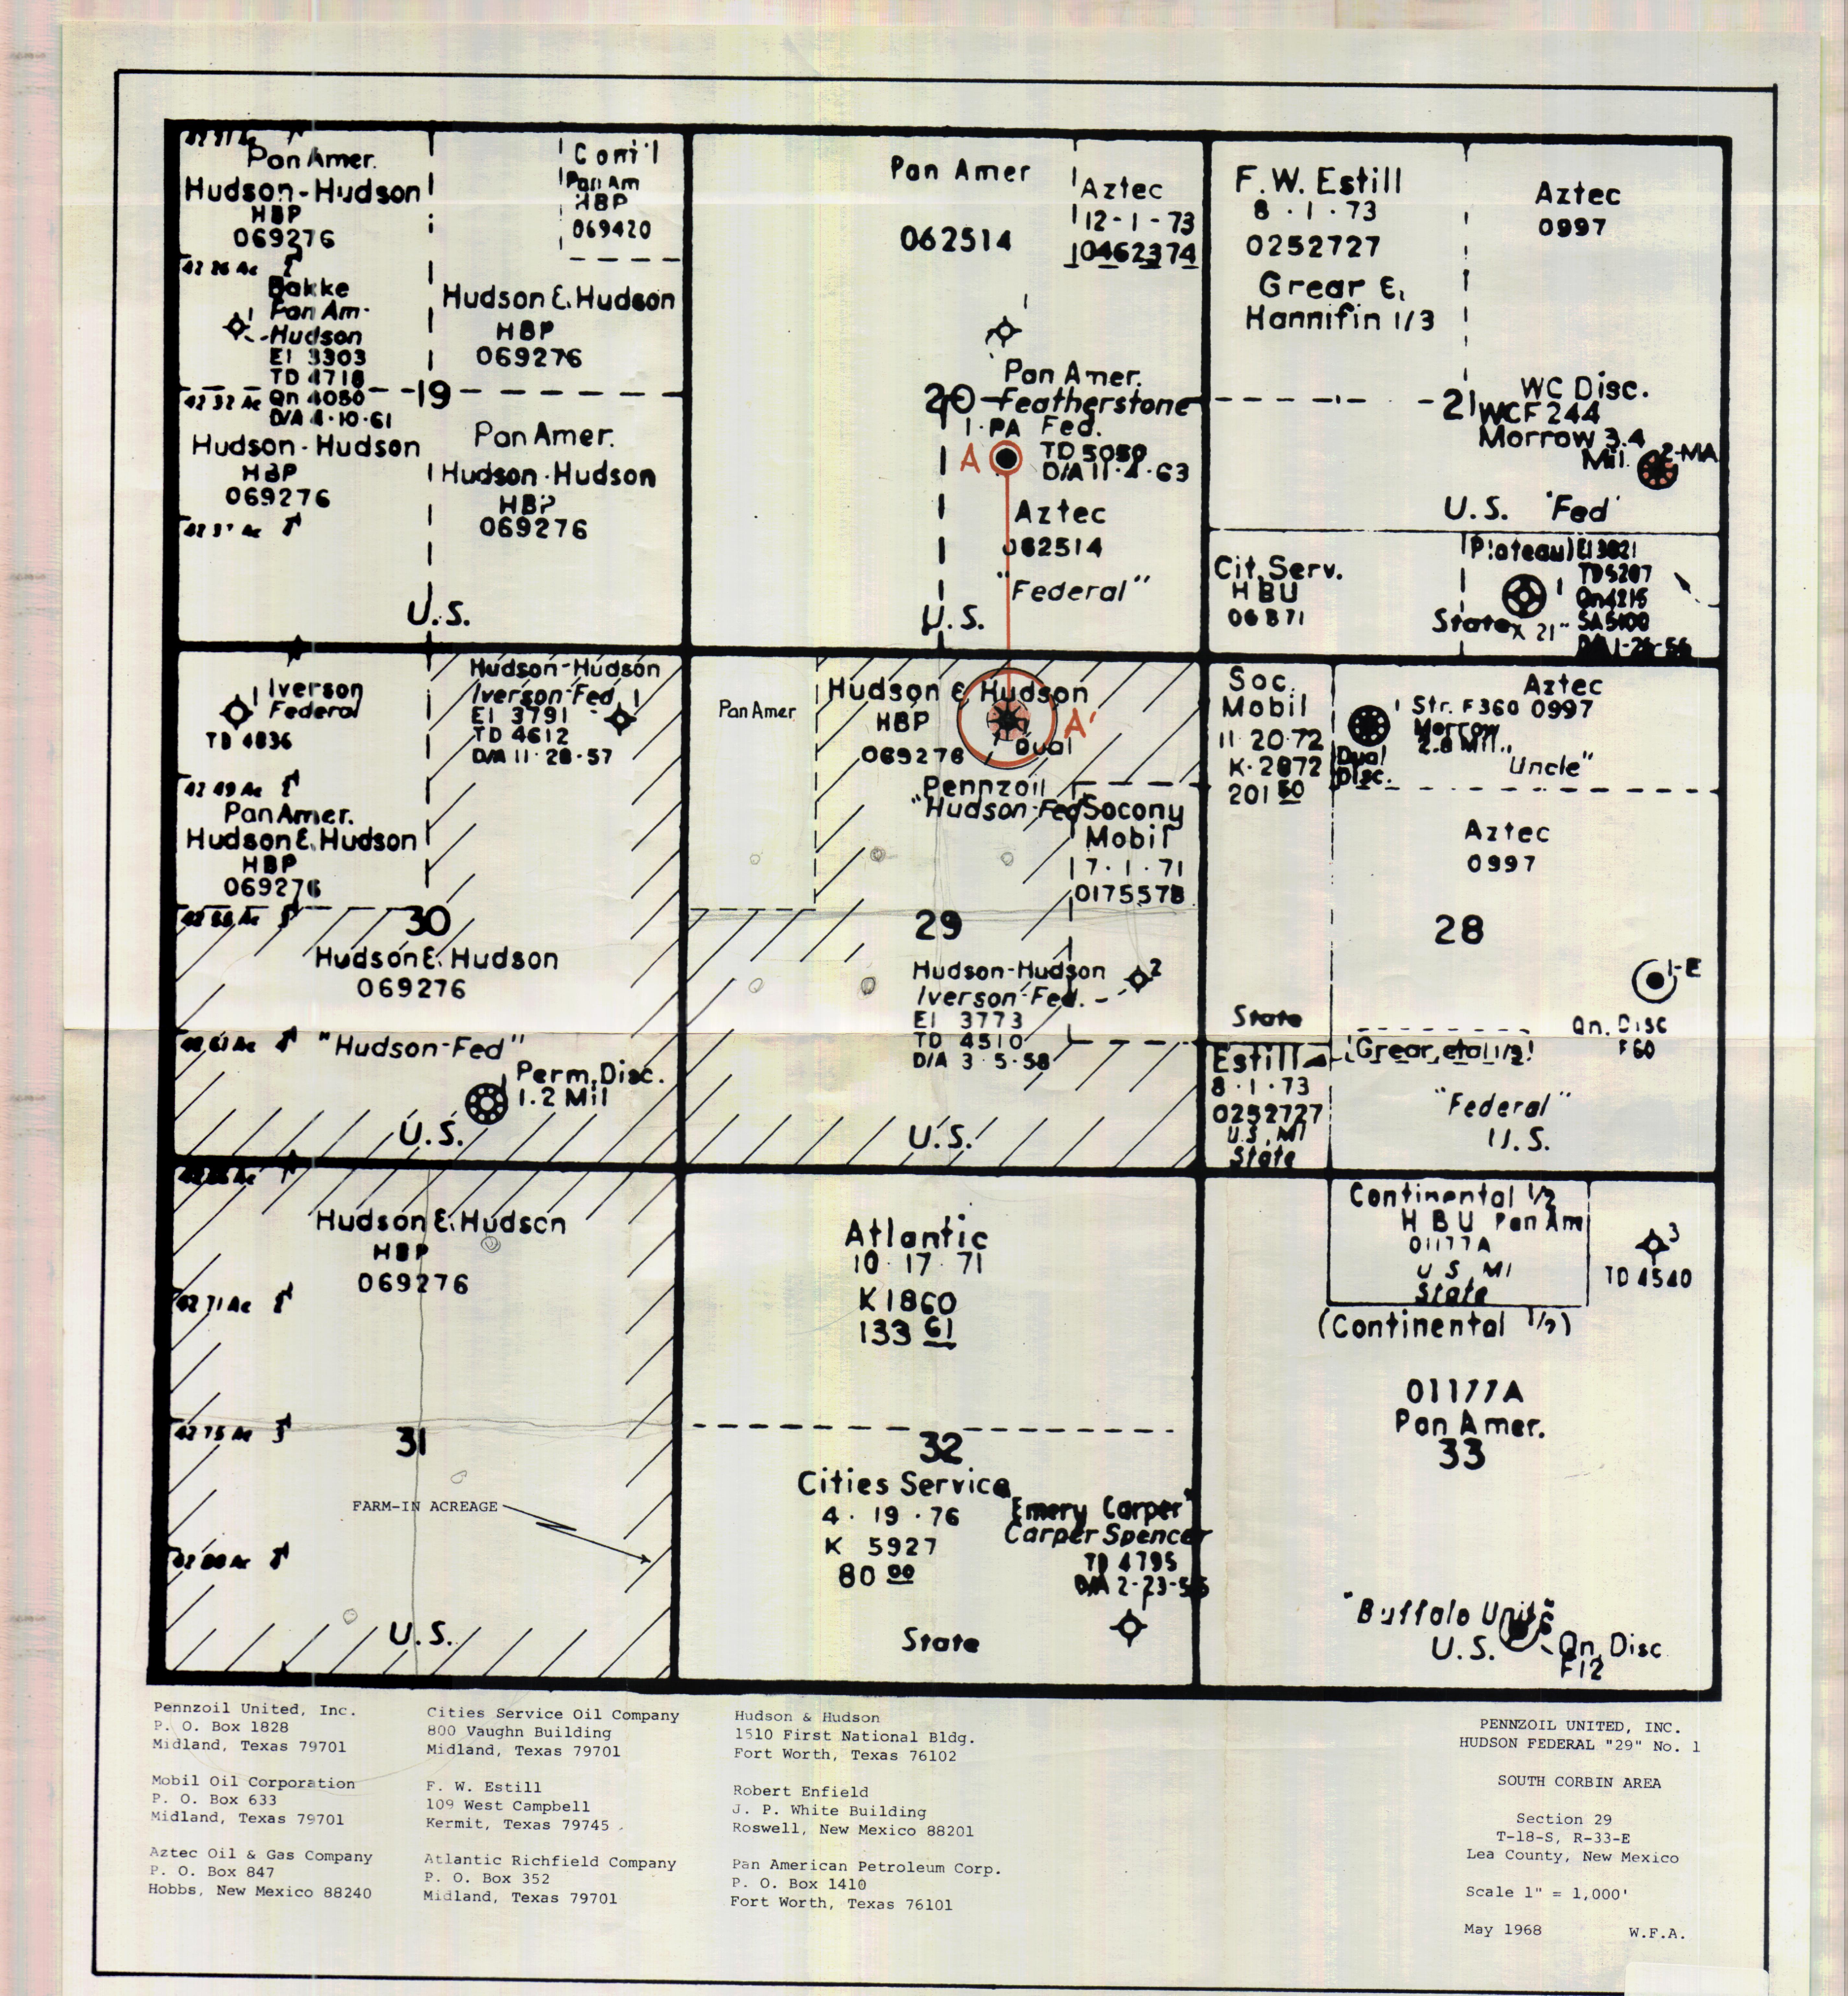 Pan Amer.
Hudson-Hudson
HBP
069276
42 26 Ac
Bakke
Pan Am-
Hudson
El 3303
TD 4718
Qn 4050
D/A 4·10·61
42 32 Ac
Hudson-Hudson
HBP
069276
42 37 Ac
Cont'l
Pan Am
HBP
069420
Hudson & Hudson
HBP
069276
19
Pan Amer.
Hudson-Hudson
HBP
069276
U.S.
Pan Amer
062514
Aztec
12-1-73
0462374
1
Pan Amer.
20
Featherstone
Fed.
1-PA
TD 5050
D/A 11·4·63
A
Aztec
062514
"Federal"
U.S.
F.W. Estill
8·1·73
0252727
Grear &
Hannifin 1/3
Aztec
0997
21
WC Disc.
WCF 244
Morrow 3.4
Mil.
2-MA
U.S. "Fed"
Cit. Serv.
HBU
06871
Plateau
1
El 3821
TD 5207
Qn 4215
SA 5100
D/A 1-25-56
State
"X 21"
1
Iverson
Federal
TD 4836
42 49 Ac
Pan Amer.
Hudson & Hudson
HBP
069276
Hudson-Hudson
Iverson-Fed.
1
El 3791
TD 4612
D/A 11·28·57
30
Hudson & Hudson
069276
"Hudson-Fed"
1
Perm. Disc.
1.2 Mil
U.S.
Pan Amer
Hudson & Hudson
HBP
069276
Dual
A'
Pennzoil
"Hudson-Fed"
Socony
Mobil
7·1·71
0175578
29
Hudson-Hudson
Iverson-Fed.
2
El 3773
TD 4510
D/A 3·5·58
U.S.
Soc.
Mobil
11·20·72
K-2872
201 60
Aztec
0997
1
Str. F360
Morrow
2.8 Mil.
Dual
Disc.
"Uncle"
Aztec
0997
28
1-E
Qn. Disc
F60
State
Estill
8·1·73
0252727
U.S. MI
State
Grear, etal 1/2
"Federal"
U.S.
Hudson & Hudson
HBP
069276
42 71 Ac
42 75 Ac
31
FARM-IN ACREAGE
U.S.
Atlantic
10·17·71
K 1860
133 61
32
Cities Service
4·19·76
K 5927
80 00
"Emery Carper"
Carper Spencer
TD 4795
State
Continental 1/2
HBU Pan Am
01177A
U S MI
State
(Continental 1/2)
3
TD 4540
01177A
Pan Amer.
33
"Buffalo Unit"
U.S.
Qn. Disc
F12
Pennzoil United, Inc.
P. O. Box 1828
Midland, Texas 79701
Mobil Oil Corporation
P. O. Box 633
Midland, Texas 79701
Aztec Oil & Gas Company
P. O. Box 847
Hobbs, New Mexico 88240
Cities Service Oil Company
800 Vaughn Building
Midland, Texas 79701
F. W. Estill
109 West Campbell
Kermit, Texas 79745
Atlantic Richfield Company
P. O. Box 352
Midland, Texas 79701
Hudson & Hudson
1510 First National Bldg.
Fort Worth, Texas 76102
Robert Enfield
J. P. White Building
Roswell, New Mexico 88201
Pan American Petroleum Corp.
P. O. Box 1410
Fort Worth, Texas 76101
PENNZOIL UNITED, INC.
HUDSON FEDERAL "29" No. 1
SOUTH CORBIN AREA
Section 29
T-18-S, R-33-E
Lea County, New Mexico
Scale 1" = 1,000'
May 1968 W.F.A.